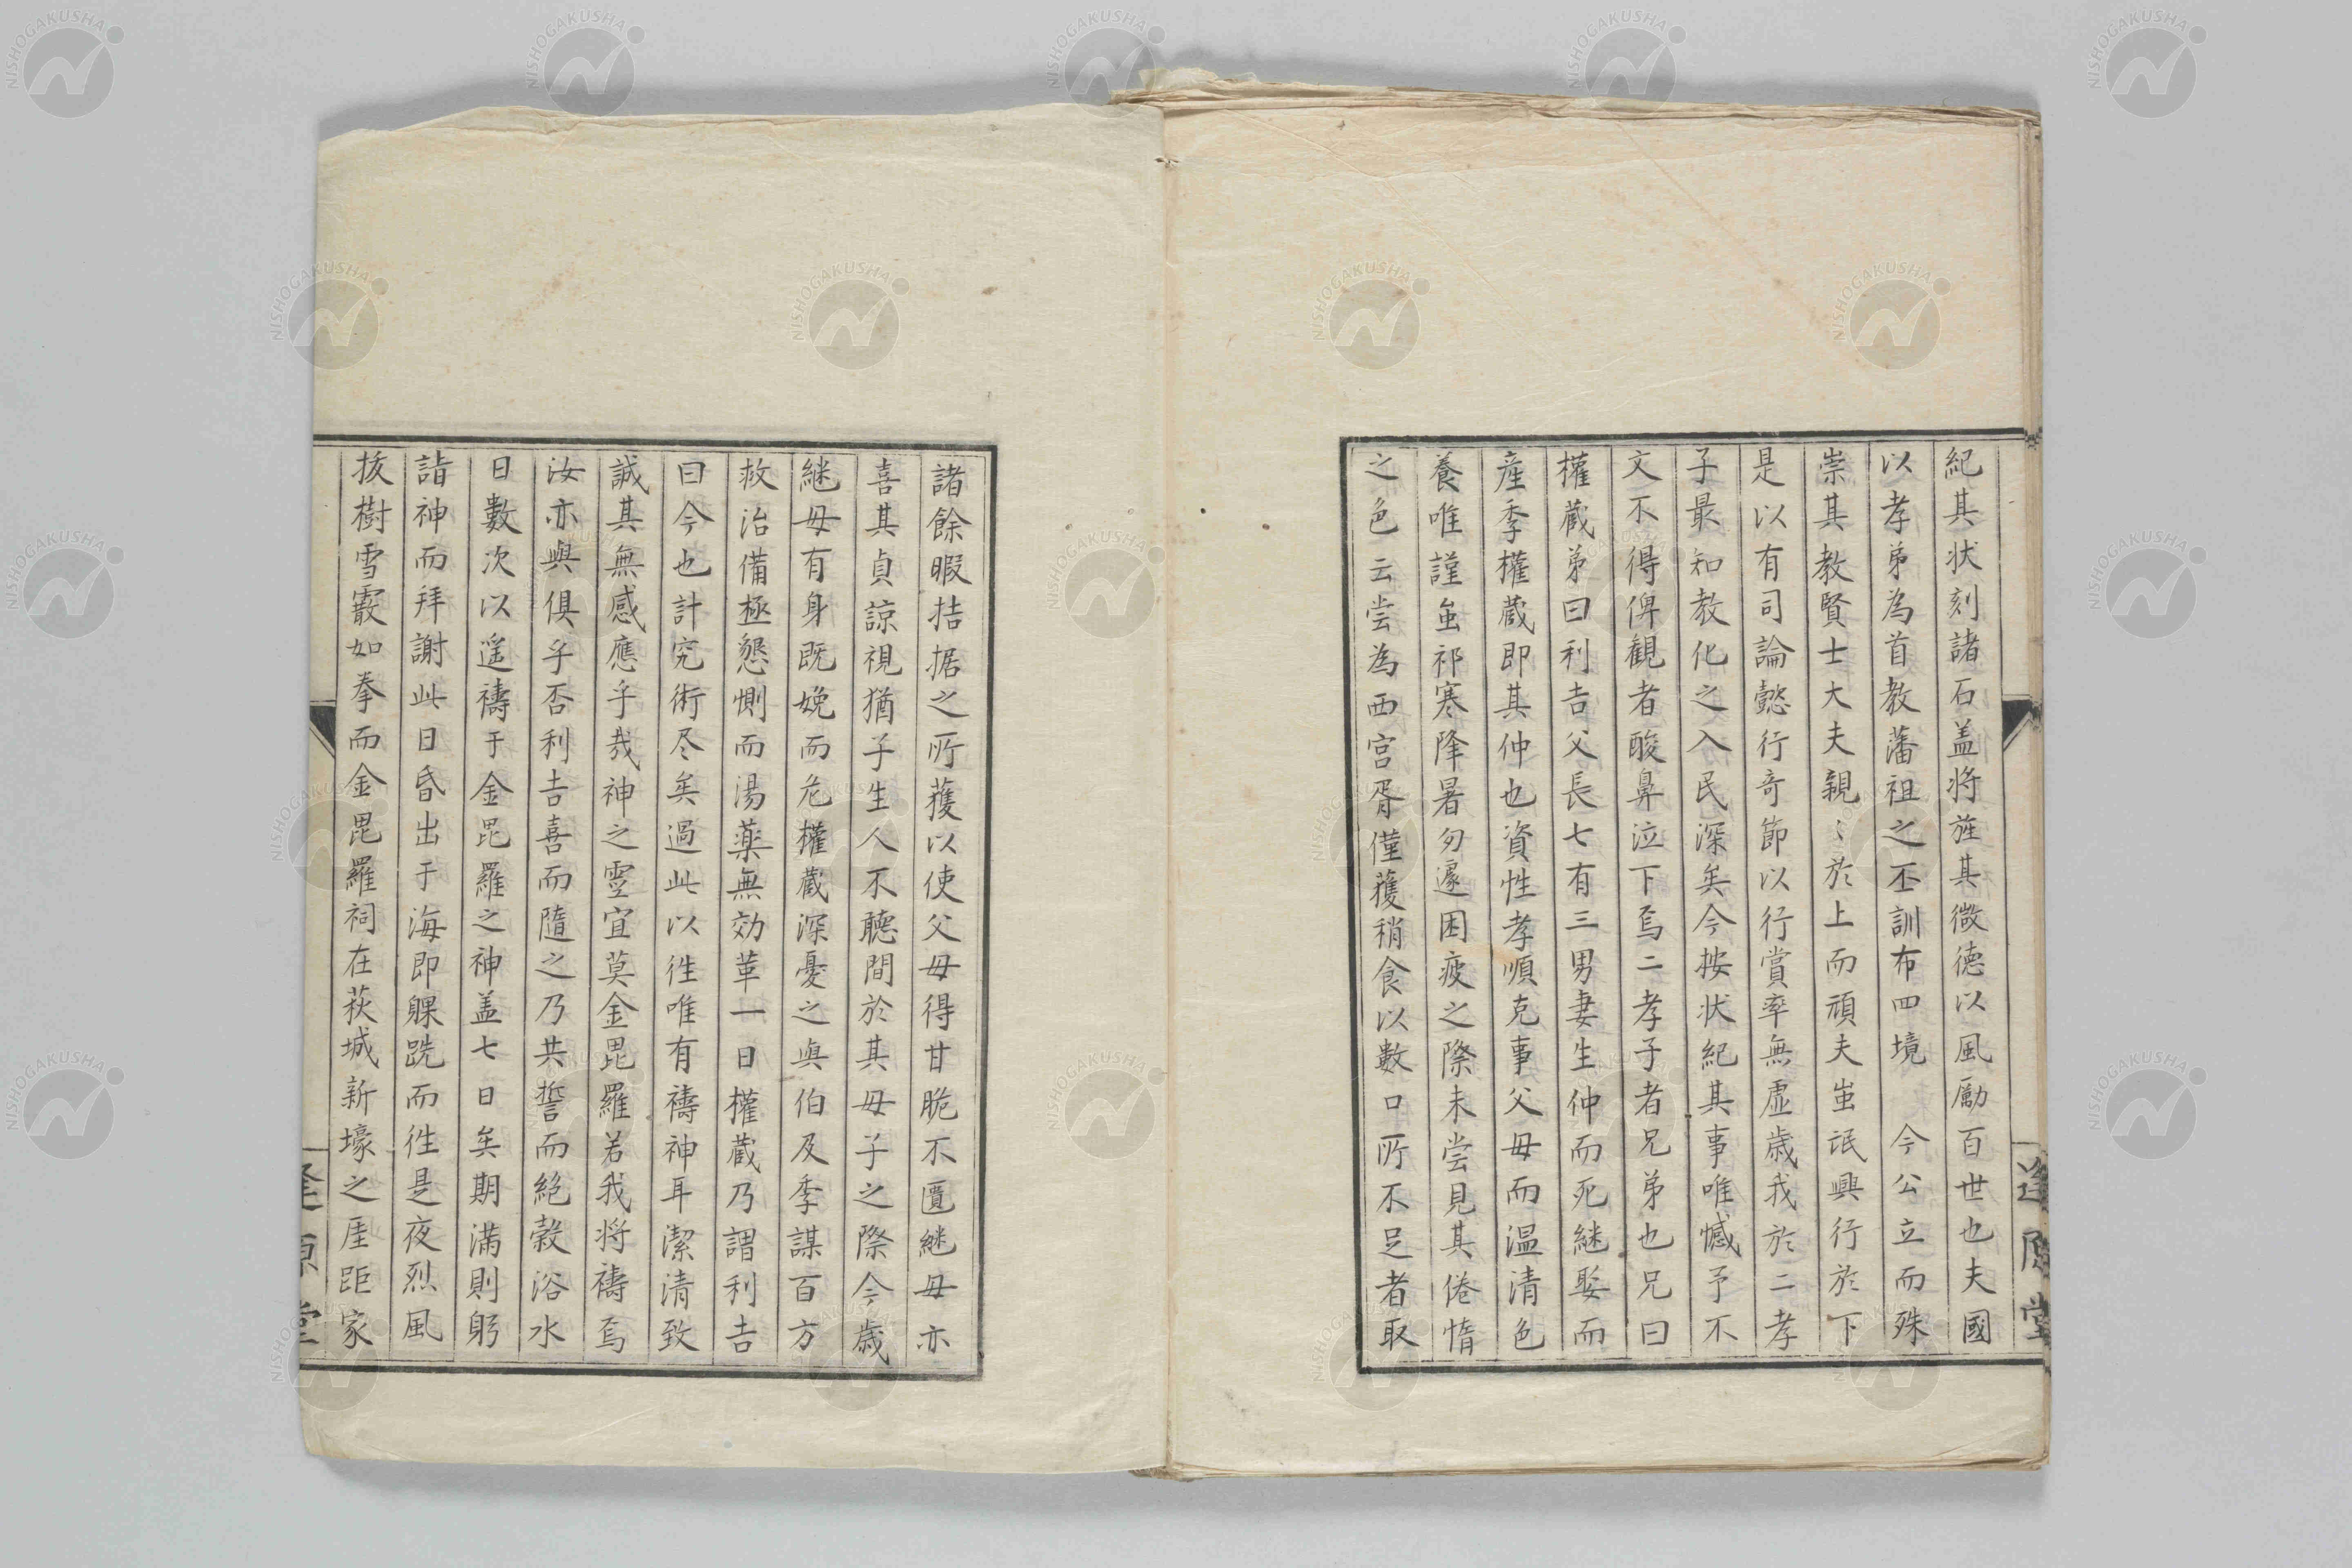 紀其状刻諸石盖将旌其徴徳以風勵百世也夫國
以孝弟為首教藩祖之丕訓布四境 今公立而殊
崇其教賢士大夫親〻於上而頑夫虽氓興行於下
是以有司論懿行奇節以行賞率無虚歳我於二孝
子最知教化之入民深矣今按状紀其事唯憾予不
文不得俾観者酸鼻泣下焉二孝子者兄弟也兄曰
權蔵弟曰利吉父長七有三男妻生仲而死継娶而
産季權蔵即其仲也資性孝順克事父母而温清色
養唯謹虽祁寒隆暑匆遽困疲之際未嘗見其倦惰
之色云嘗為西宮胥僅獲稍食以數口所不足者取
諸餘暇拮据之所獲以使父母得甘脆不匱継母亦
喜其貞諒視猶子生人不聴間於其母子之際今歳
継母有身既娩而危權蔵深憂之與伯及季謀百方
救治備極懇惻而湯薬無効革一日權蔵乃謂利吉
曰今也計究術尽矣過此以徃唯有禱神耳潔清致
誠其無感應乎哉神之霊宜莫金毘羅若我将禱焉
汝亦與俱乎否利吉喜而隨之乃共誓而絶穀浴水
日數次以遥禱于金毘羅之神盖七日矣期満則躬
詣神而拜謝此日昏出于海即躶跣而徃是夜烈風
抜樹雪霰如拳而金毘羅祠在荻城新壕之厓距家
逢原堂
逢原堂
NISHOGAKUSHA